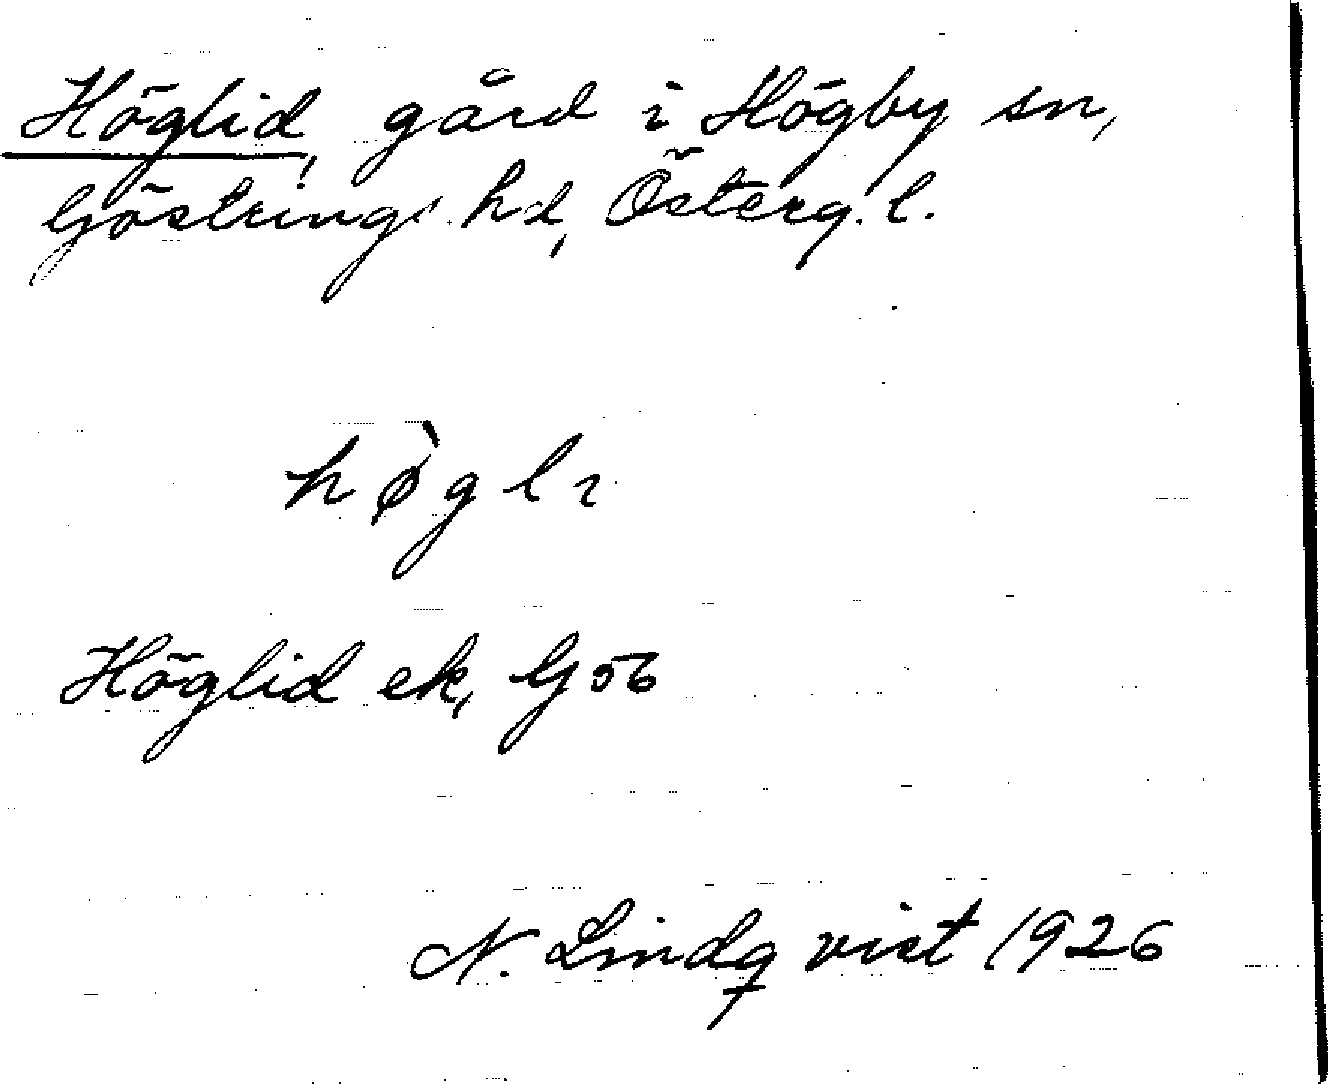 Höglid, gård i Högby sn,
Göstrings hd, Österg. l.
hø̀glı
Höglid ek, G 56
N. Lindqvist 1926